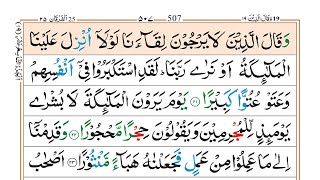 وقال الذين ١٩ ٥٠٧ 507 الفرقان ٢٥
وَقَالَ الَّذِيْنَ لَا يَرْجُوْنَ لِقَآءَنَا لَوْلَاۤ اُنْزِلَ عَلَيْنَا
الْمَلٰٓئِكَةُ اَوْ نَرٰى رَبَّنَا ؕ لَقَدِ اسْتَكْبَرُوْا فِیْۤ اَنْفُسِهِمْ
وَعَتَوْ عُتُوًّا كَبِيْرًا ﴿۲۱﴾ يَوْمَ يَرَوْنَ الْمَلٰٓئِكَةَ لَا بُشْرٰى
يَوْمَئِذٍ لِّلْمُجْرِمِيْنَ وَيَقُوْلُوْنَ حِجْرًا مَّحْجُوْرًا ﴿۲۲﴾ وَقَدِمْنَاۤ
اِلٰى مَا عَمِلُوْا مِنْ عَمَلٍ فَجَعَلْنٰهُ هَبَآءً مَّنْثُوْرًا ﴿۲۳﴾ اَصْحٰبُ